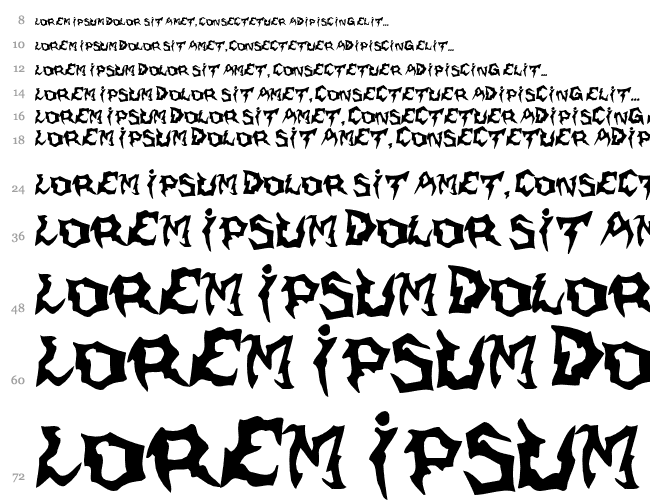 8 Lorem ipsum Dolor sit amet, Consectetuer adipiscing elit...
10 Lorem ipsum Dolor sit amet, Consectetuer adipiscing elit...
12 Lorem ipsum Dolor sit amet, Consectetuer adipiscing elit...
14 Lorem ipsum Dolor sit amet, Consectetuer adipiscing elit...
16 Lorem ipsum Dolor sit amet, Consectetuer adipiscing
18 Lorem ipsum Dolor sit amet, Consectetuer adip
24 Lorem ipsum Dolor sit amet, Consect
36 Lorem ipsum Dolor sit am
48 Lorem ipsum Dolor
60 Lorem ipsum Do
72 Lorem ipsum